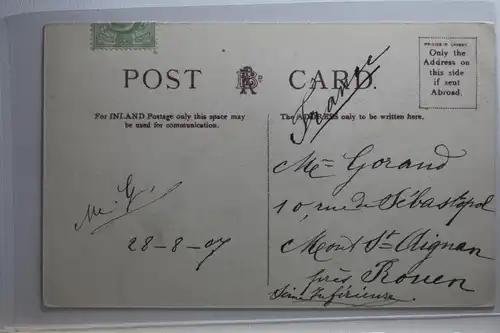 POST CARD.
PRINTED IN SAXONY.
Only the
Address on
this side
if sent
Abroad.
For INLAND Postage only this space may
be used for communication.
The ADDRESS only to be written here.
France
M. G.
28-8-07
Me Gorand
10, rue de Sébastopol
Mont St Aignan
près Rouen
Seine Inférieure.